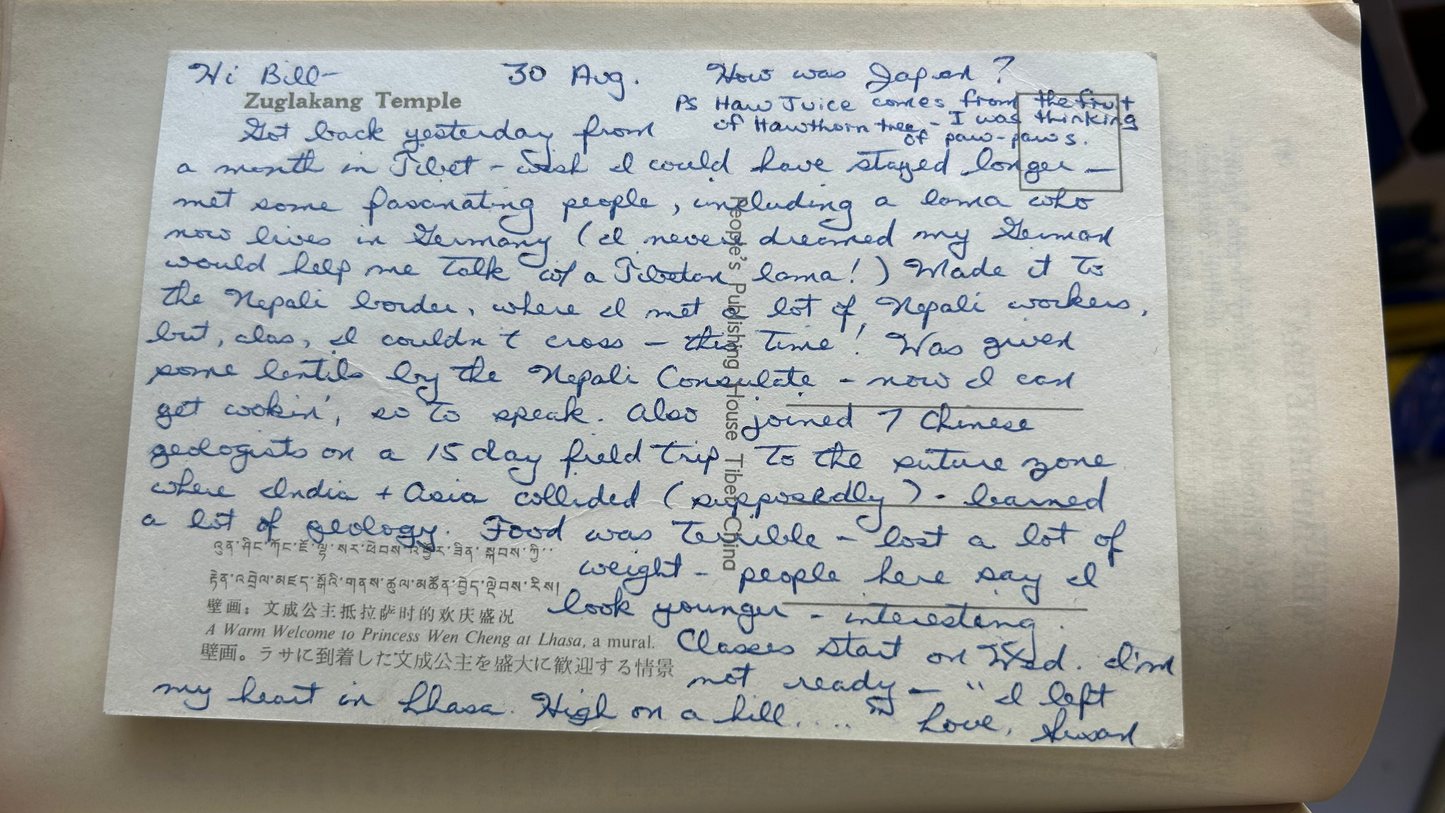 Hi Bill- 30 Aug. How was Japan?
Zuglakang Temple
PS Haw Juice comes from the fruit
of Hawthorn tree - I was thinking
of paw-paws.
Got back yesterday from
a month in Tibet - wish I could have stayed longer -
met some fascinating people, including a lama who
now lives in Germany (I never dreamed my German
would help me talk w/ a Tibetan lama!) Made it to
the Nepali border, where I met a lot of Nepali workers,
but, alas, I couldn't cross - this time! Was given
some lentils by the Nepali Consulate - now I can
get cookin', so to speak. Also joined 7 Chinese
geologists on a 15 day field trip to the suture zone
where India + Asia collided (supposedly) - learned
a lot of geology. Food was terrible - lost a lot of
weight - people here say I
look younger - interesting.
Classes start on Wed. I'm
not ready - "I left
my heart in Lhasa. High on a hill...." Love, Susan
People's Publishing House Tibet China
壁画：文成公主抵拉萨时的欢庆盛况
A Warm Welcome to Princess Wen Cheng at Lhasa, a mural.
壁画。ラサに到着した文成公主を盛大に歓迎する情景